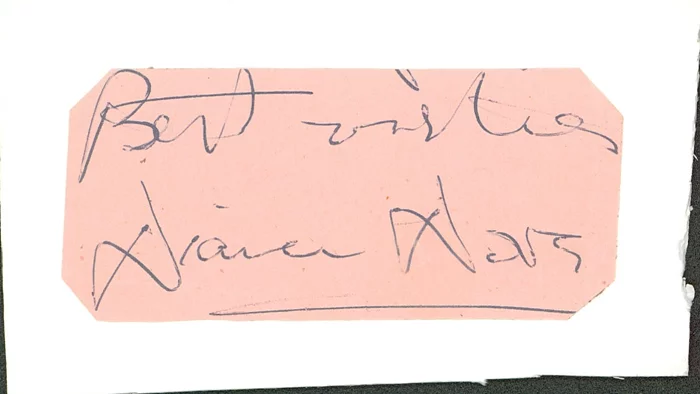 Best wishes
Diana Dors